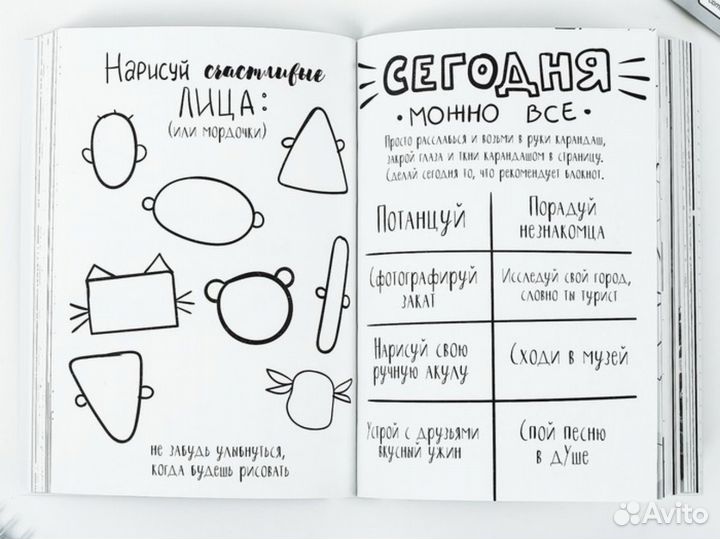 Нарисуй счастливые
ЛИЦА:
(или мордочки)
не забудь улыбнуться,
когда будешь рисовать
СЕГОДНЯ
•МОЖНО ВСЕ•
Просто расслабься и возьми в руки карандаш,
закрой глаза и ткни карандашом в страницу.
Сделай сегодня то, что рекомендует блокнот.
Потанцуй
Порадуй
незнакомца
Сфотографируй
закат
Исследуй свой город,
словно ты турист
Нарисуй свою
ручную акулу
Сходи в музей
Устрой с друзьями
вкусный ужин
Спой песню
в дУше
Avito